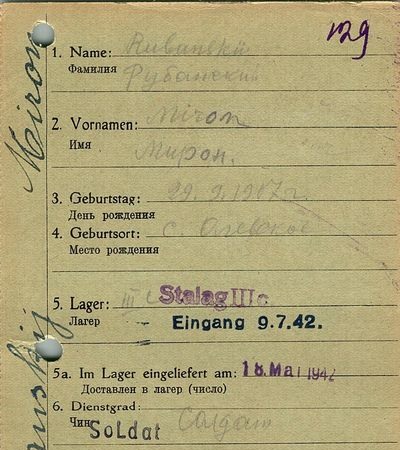 129
Miron
1. Name: Rubanskii
Фамилия Рубанский
2. Vornamen: Miron
Имя
Мирон.
3. Geburtstag: 29.9.1907 г.
День рождения
4. Geburtsort: с.
Место рождения
5. Lager: III C Stalag III c
Лагер
Eingang 9.7.42.
5a. Im Lager eingeliefert am: 18. Mai 1942
Доставлен в лагер (число)
6. Dienstgrad:
Чин Soldat Солдат